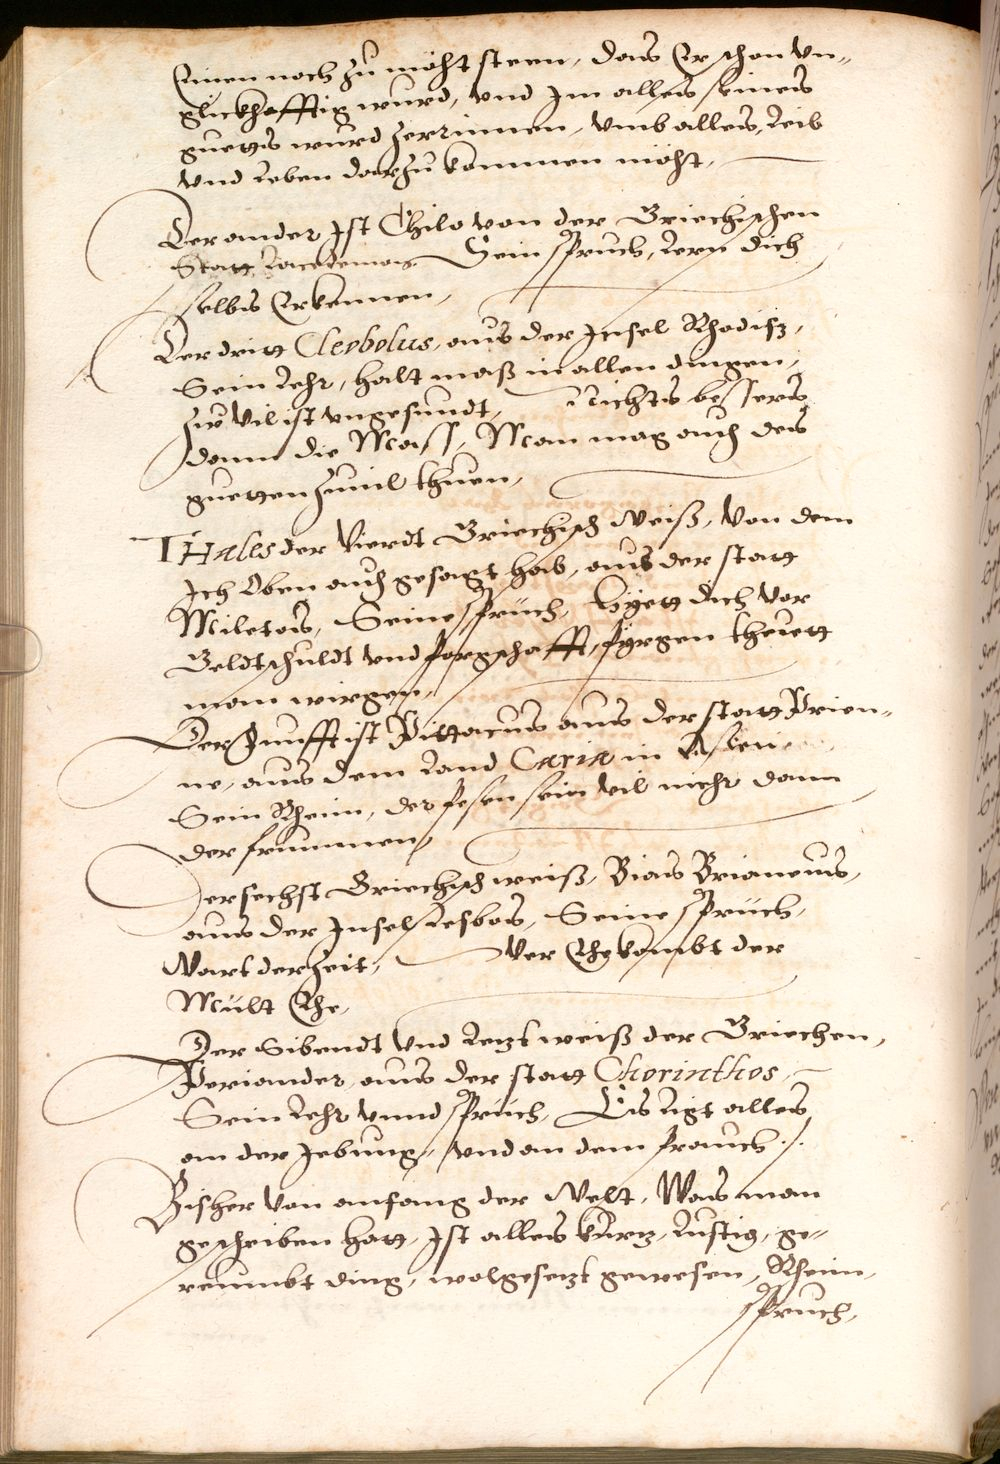 Einen noch zu möht steen, das Er schon Vn„
glickhafftig wurd, vnd Im alles seines
guetts wurd zerrinnen, vmb alles, Leib
vnd Leben darzu kommen möht,
Der ander Ist Chilo von der Griechischen
Statt Lacedemon Sein spruch, Lern dich
selbs Erkennen,
Der dritt Cleobolus, aus der Insel Rhodiss,
Sein Lehr, halt mass in allen dingen,
Zu Vil ist vngesundt, Nichts bessers
dann die Mass, Man mag auch des
guetten zuuil thuen,
THales der Vierdt Griechisch Weiß, Von dem
Ich Oben auch gesagt hab, aus der statt
Miletos, Seine sprüch, hyett dich vor
Geldtschuldt vnd porgschafft, pyrgen thuett
man wirgen,
Der Funfft ist Pittacus aus der statt Prien„
ne, aus dem Land Caria in Asien
Sein Rheim, der pesen sein vil mehr dann
der frummen,
Der sechst Griechisch weiß, Bias Prianeus,
aus der Insel Lesbos, Seine sprüch,
Wart der Zeit, Wer Ehe kombt der
Mült Ehe,
Der Sibendt vnd Letzt weiß der Griechen,
Periander, aus der statt Chorinthos,
Sein Lehr vnnd sprüch, Es ligt alles
an der Iebung, vnd an dem prauch ./.
Bisher Von anfang der Welt, Was man
geschriben hatt, Ist alles kurtz, Lustig, ge„
reumbt ding, wolgesetzt gewesen, Rheim,
spruch,